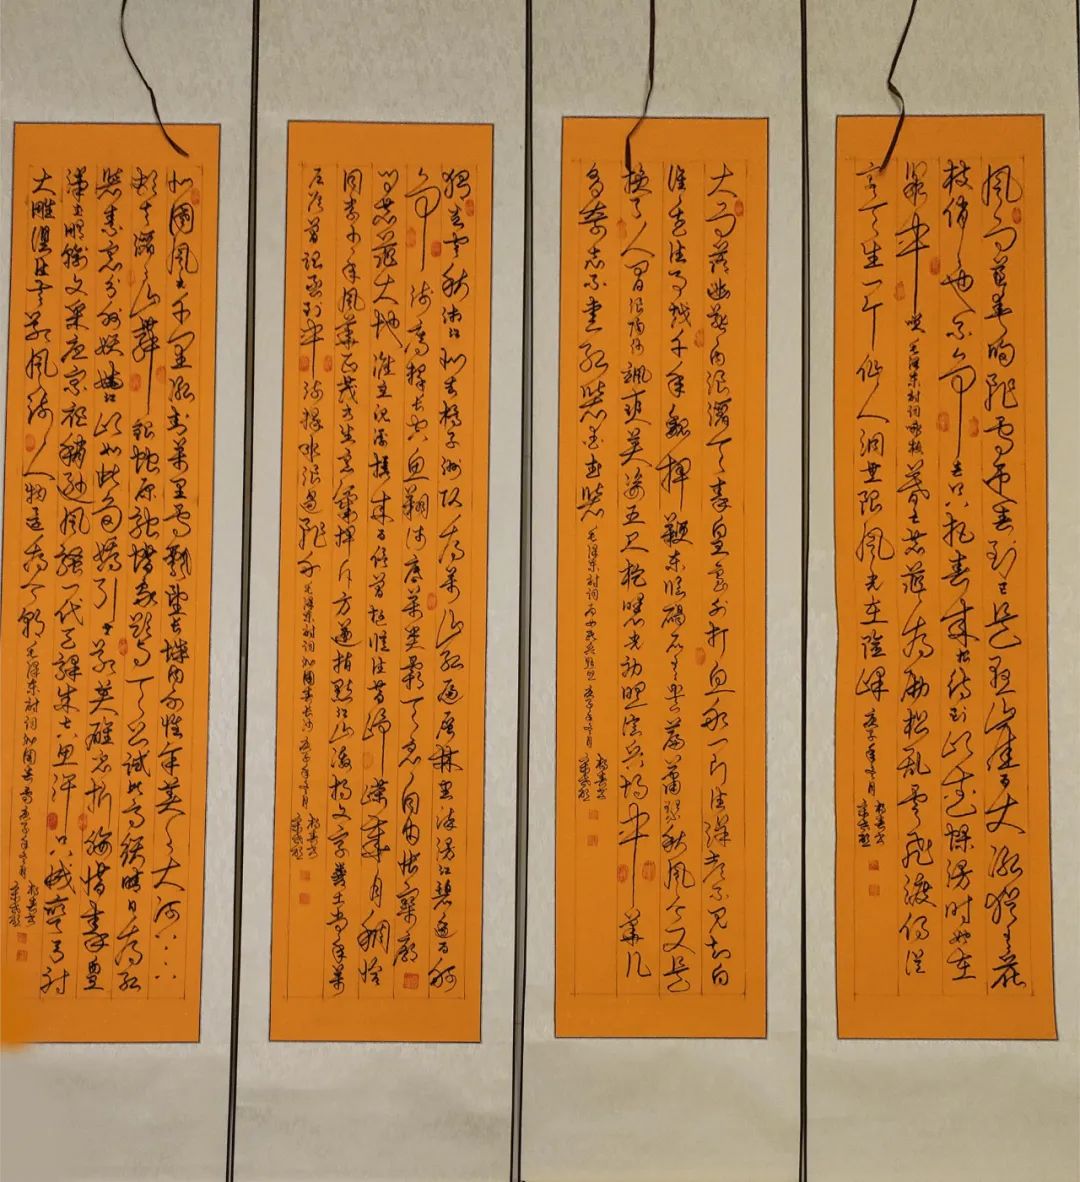 风雨送春归飞雪迎春到已是悬崖百丈冰犹有花
枝俏俏也不争春只把春来报待到山花烂漫时她在
丛中笑 毛泽东诗词咏梅 暮色苍茫看劲松乱云飞渡仍从
容天生一个仙人洞无限风光在险峰 庚子年
大雨落幽燕白浪滔天秦皇岛外打鱼船一片汪洋都不见知向
谁边往事越千年魏武挥鞭东临碣石有遗篇萧瑟秋风今又是
换了人间 飒爽英姿五尺枪曙光初照演兵场中华儿
女多奇志不爱红装爱武装 毛泽东诗词 为女民兵题照 庚子年
独立寒秋湘江北去橘子洲头看万山红遍层林尽染漫江碧透百舸
争流鹰击长空鱼翔浅底万类霜天竞自由怅寥廓
问苍茫大地谁主沉浮携来百侣曾游忆往昔峥嵘岁月稠恰
同学少年风华正茂书生意气挥斥方遒指点江山激扬文字粪土当年万
户侯曾记否到中流击水浪遏飞舟 毛泽东诗词 沁园春长沙 庚子年
北国风光千里冰封万里雪飘望长城内外惟余莽莽大河上下
顿失滔滔山舞银蛇原驰蜡象欲与天公试比高须晴日看红
装素裹分外妖娆江山如此多娇引无数英雄竞折腰惜秦皇
汉武略输文采唐宗宋祖稍逊风骚一代天骄成吉思汗只识弯弓射
大雕俱往矣数风流人物还看今朝 毛泽东诗词 沁园春雪 庚子年